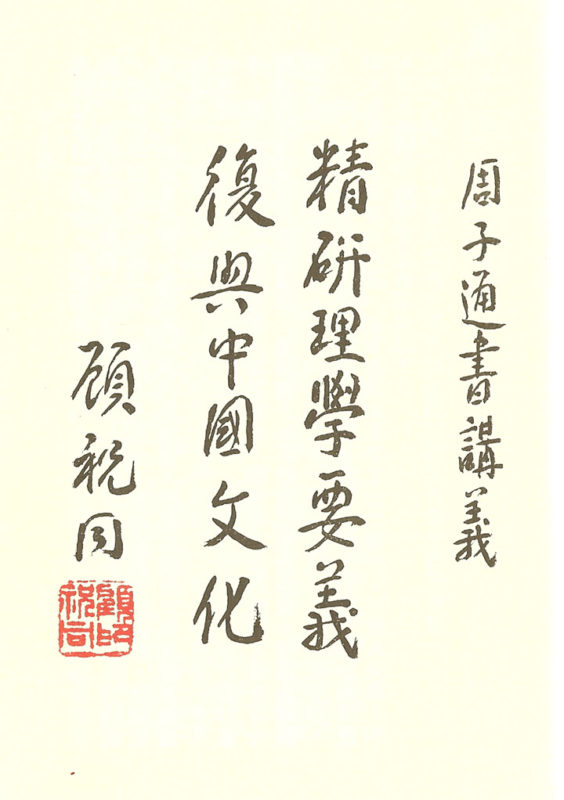 周子通書講義
精研理學要義
復興中國文化
顧祝同
顧祝同印